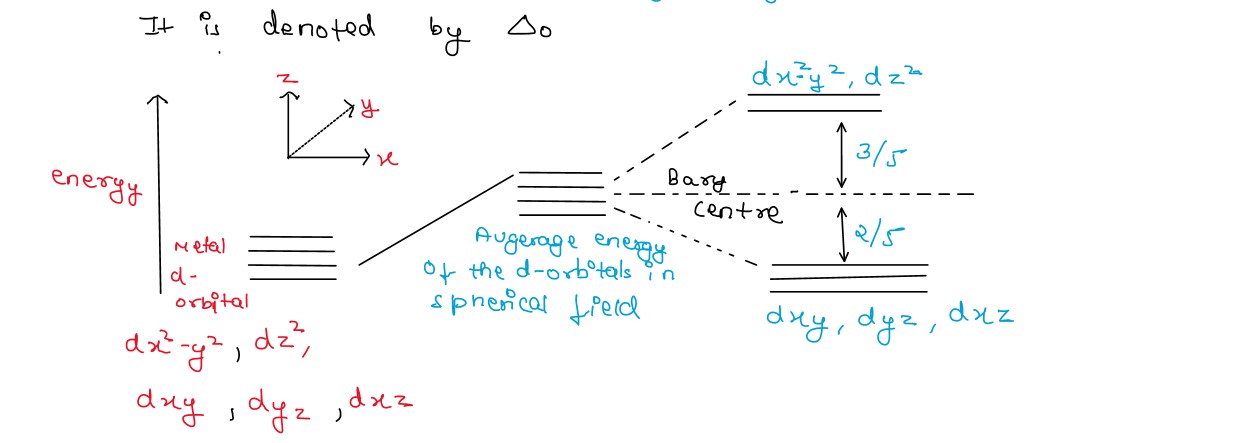 It is denoted by Δo
z
y
x
energy
Metal
d-
orbital
dx²-y², dz²,
dxy, dyz, dxz
Augerage energy
of the d-orbitals in
spherical field
Bary
centre
dx²-y², dz²
3/5
2/5
dxy, dyz, dxz